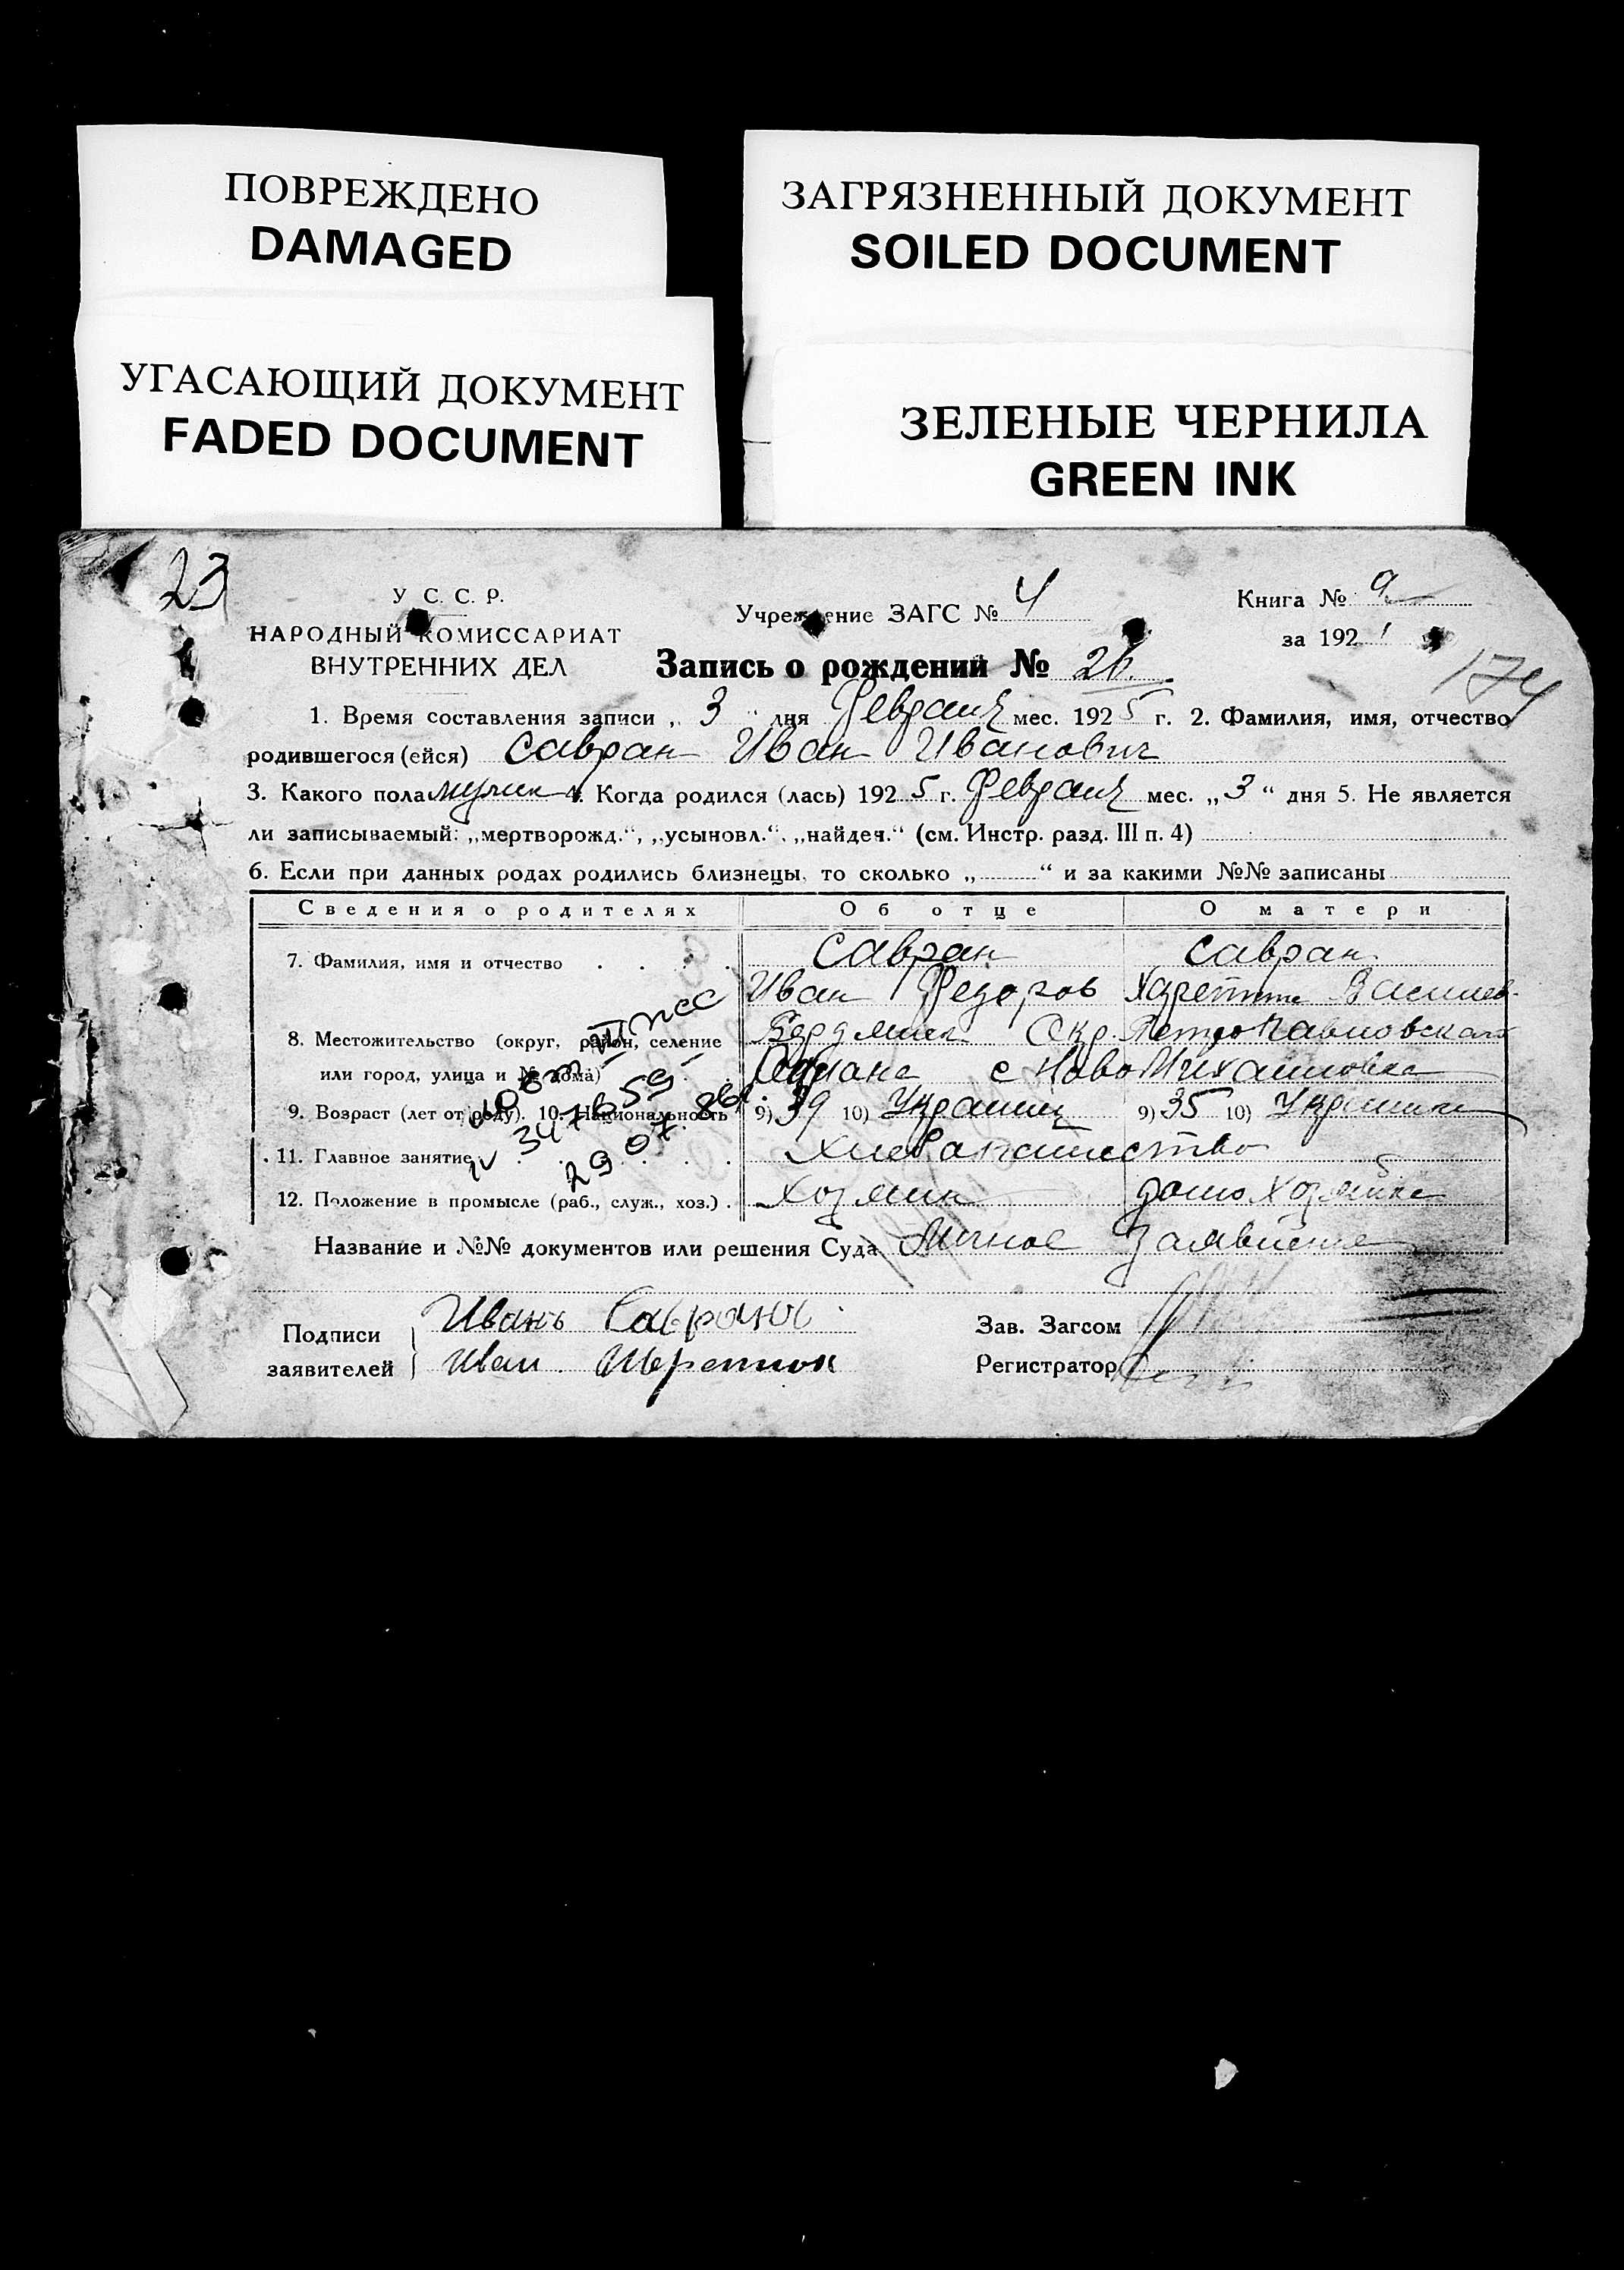 ПОВРЕЖДЕНО
DAMAGED
ЗАГРЯЗНЕННЫЙ ДОКУМЕНТ
SOILED DOCUMENT
УГАСАЮЩИЙ ДОКУМЕНТ
FADED DOCUMENT
ЗЕЛЕНЫЕ ЧЕРНИЛА
GREEN INK
23
У С. С. Р.
НАРОДНЫЙ КОМИССАРИАТ
ВНУТРЕННИХ ДЕЛ
Учреждение ЗАГС № 4
Книга №
за 192
174
Запись о рождении № 26.
1. Время составления записи „ 3 " дня Февраля мес. 1925 г. 2. Фамилия, имя, отчество
родившегося (ейся) Савран Иван Иванович
3. Какого пола 4. Когда родился (лась) 192 5 г. Февраля мес. „ 3 “ дня 5. Не является
ли записываемый: „мертворожд.“, „усыновл.“, „найден.“ (см. Инстр. разд. III п. 4)
6. Если при данных родах родились близнецы, то сколько „ “ и за какими №№ записаны
Сведения о родителях Об отце О матери
7. Фамилия, имя и отчество Савран Савран
Иван Федоров Василев-
8. Местожительство (округ, район, селение Бердянск Окр. Петропавловскаго
или город, улица и № дома) Района с Ново Михайловка
9. Возраст (лет от роду). 10. Национальность 9) 39 10) Украинц 9) 35 10) Украинка
11. Главное занятие Хлебапашество
12. Положение в промысле (раб., служ., хоз.) Хозяин домохозяйка
Название и №№ документов или решения Суда Личное Заявление
Подписи
заявителей
Иванъ
Иван
Зав. Загсом
Регистратор
IV 347659
29 07